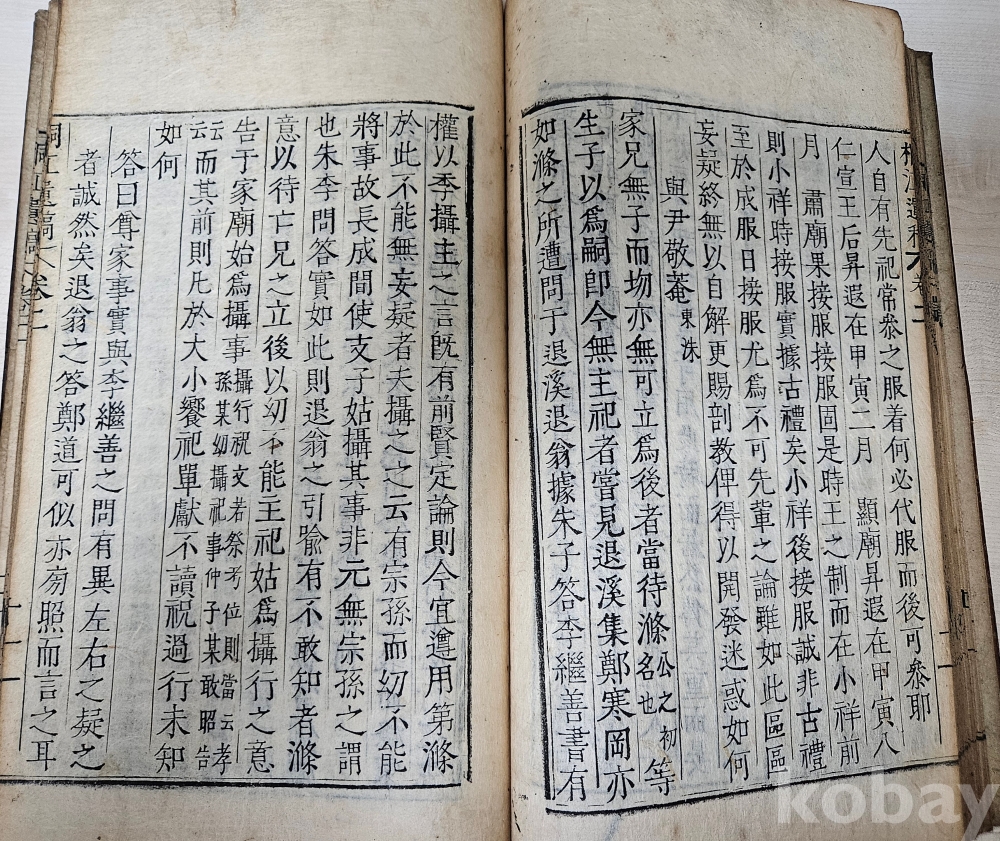 人自有先祀常參之服着何必代服而後可參耶
仁宣王后昇遐在甲寅二月 顯廟昇遐在甲寅八
月 肅廟果接服接服固是時王之制而在小祥前
則小祥時接服實據古禮矣小祥後接服誠非古禮
至於成服日接服尤爲不可先輩之論雖如此區區
妄疑終無以自解更賜剖敎俾得以開發迷惑如何
與尹敬菴 東洙
家兄無子而物亦無可立爲後者當待滌 公之初名也 等
生子以爲嗣卽今無主祀者嘗見退溪集鄭寒岡亦
如滌之所遭問于退溪退翁據朱子答李繼善書有
權以季攝主之言旣有前賢定論則今宜遵用第滌
於此不能無妄疑者夫攝之之云有宗孫而幼不能
將事故長成間使支子姑攝其事非元無宗孫之謂
也朱李問答實如此則退翁之引喩有不敢知者滌
意以待亡兄之立後以幼不能主祀姑爲攝行之意
告于家廟始爲攝事 攝行祝文若祭考位則當云孝
孫某幼攝祀事仲子某敢昭告
云云而其前則凡於大小饗祀單獻不讀祝過行未知
如何
答曰尊家事實與李繼善之問有異左右之疑之
者誠然矣退翁之答鄭道可似亦旁照而言之耳
遺稿 卷二
kobay